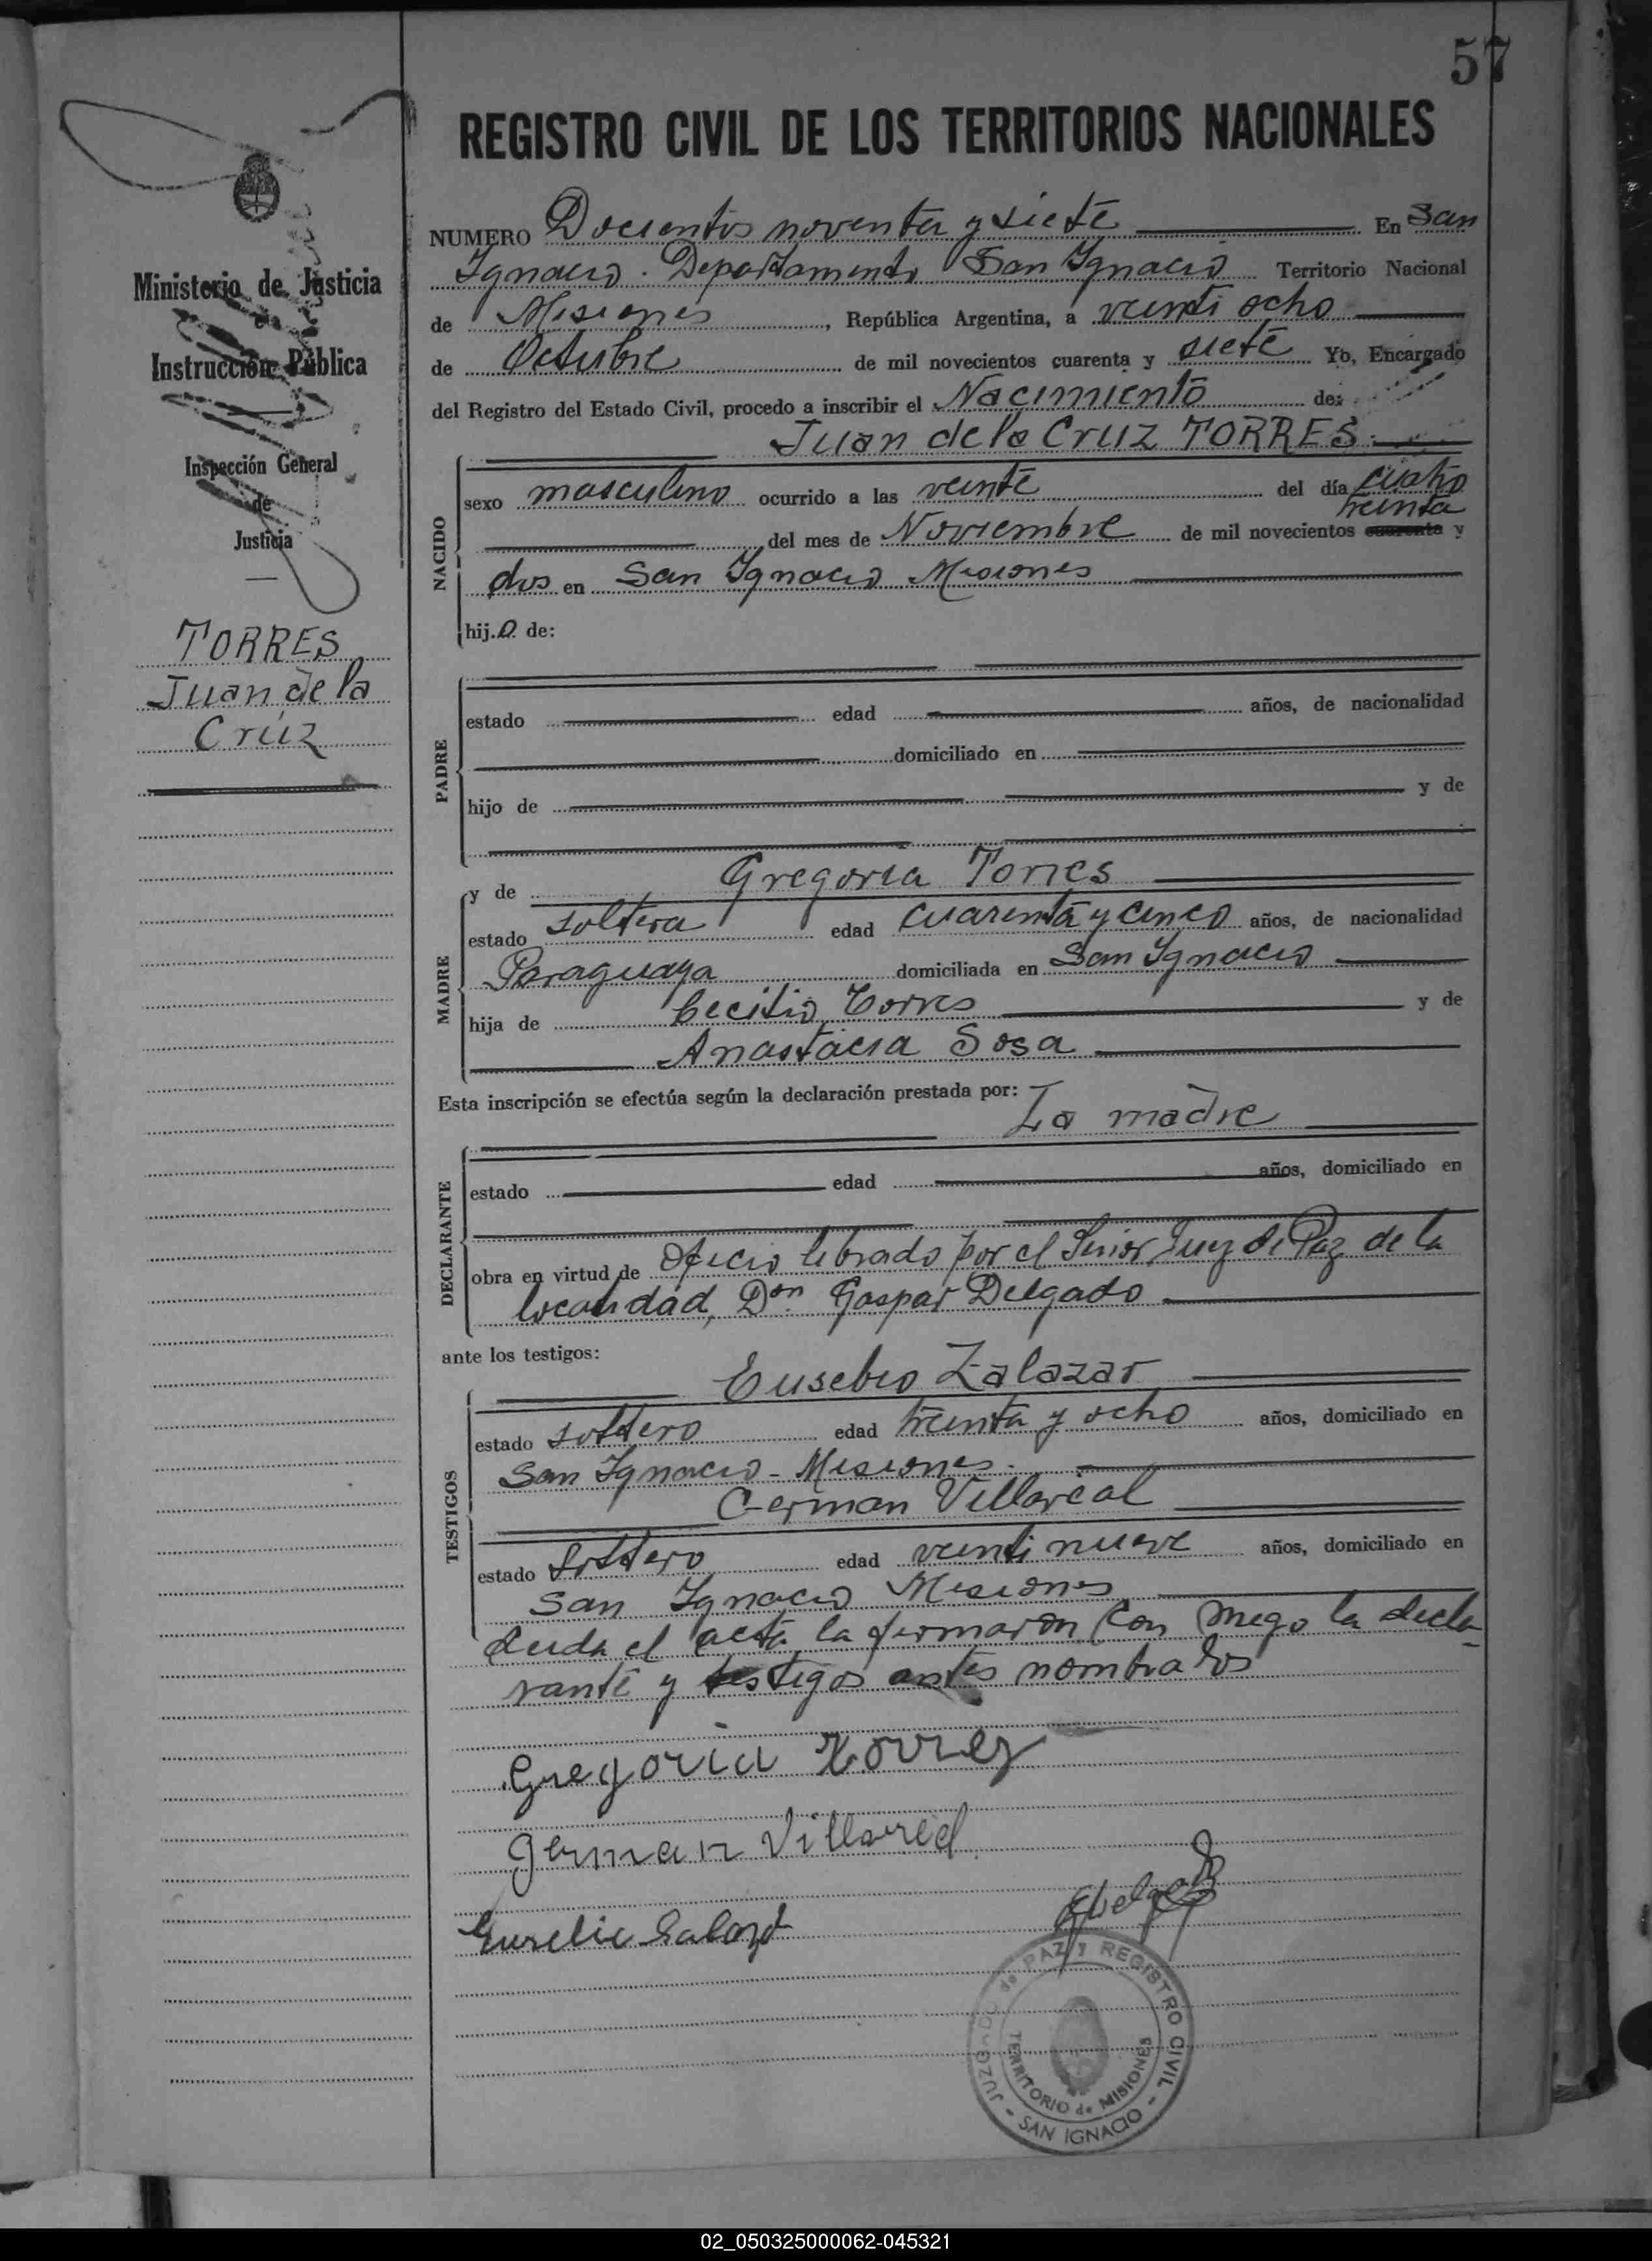 57
REGISTRO CIVIL DE LOS TERRITORIOS NACIONALES
Ministerio de Justicia
e
Instrucción Pública
Inspección General
de
Justicia
TORRES
Juan de la
Cruz
NUMERO Docientos noventa y siete En San
Ignacio. Departamento San Ignacio Territorio Nacional
de Misiones, República Argentina, a veinti ocho
de Octubre de mil novecientos cuarenta y siete Yo, Encargado
del Registro del Estado Civil, procedo a inscribir el Nacimiento de:
Juan de la Cruz TORRES
NACIDO
sexo masculino ocurrido a las veinte del día cuatro
treinta
del mes de Noviembre de mil novecientos cuarenta y
dos en San Ignacio Misiones
hij.o de:
PADRE
estado edad años, de nacionalidad
domiciliado en
hijo de y de
MADRE
y de Gregoria Torres
estado soltera edad cuarenta y cinco años, de nacionalidad
Paraguaya domiciliada en San Ignacio
hija de Cecilio Torres y de
Anastacia Sosa
Esta inscripción se efectúa según la declaración prestada por: La madre
DECLARANTE
estado edad años, domiciliado en
obra en virtud de oficio librado por el Señor Juez de Paz de la
localidad, Don Gaspar Delgado
ante los testigos:
TESTIGOS
Eusebio Zalazar
estado soltero edad treinta y ocho años, domiciliado en
San Ignacio - Misiones.
German Villareal
estado Soltero edad veinti nueve años, domiciliado en
San Ignacio Misiones
Leida el acta la firmaron con migo la decla-
rante y testigos antes nombrados
Gregoria Torres
German Villareal
JUZGADO de PAZ y REGISTRO CIVIL - SAN IGNACIO -
TERRITORIO de MISIONES
02_050325000062-045321